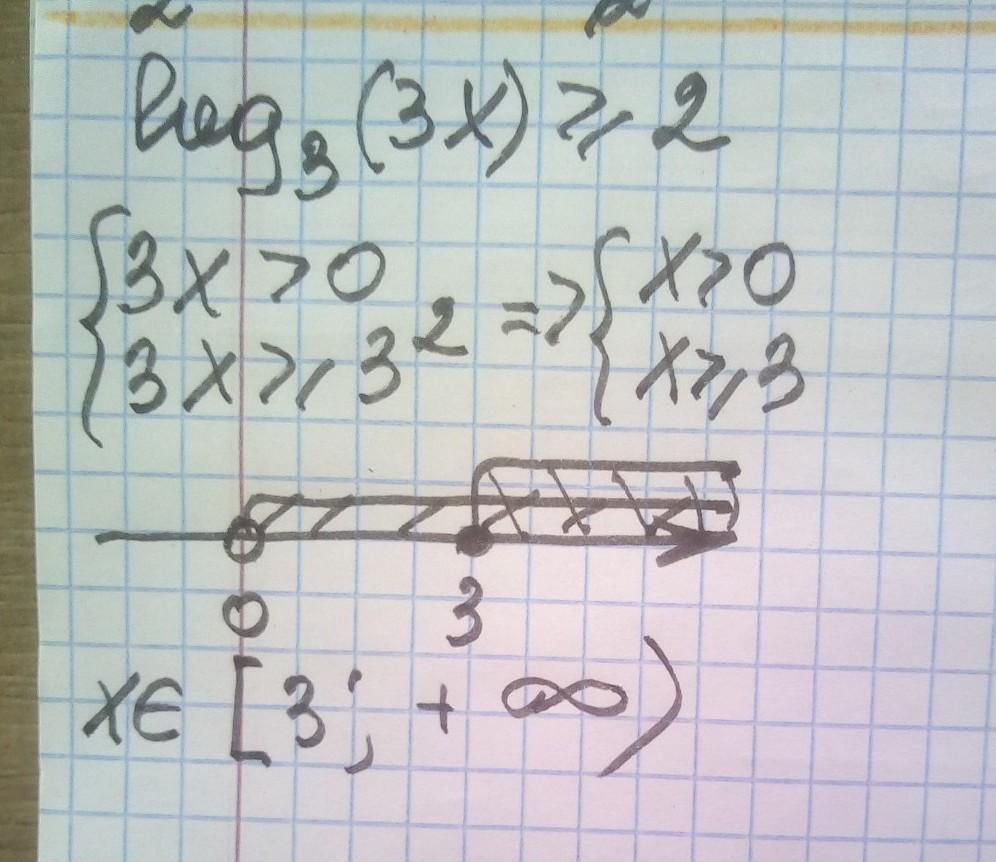 log₃(3x) ⩾ 2
{3x > 0
{3x ⩾ 3² => {x > 0
{x ⩾ 3
0 3
x ∈ [3; + ∞)